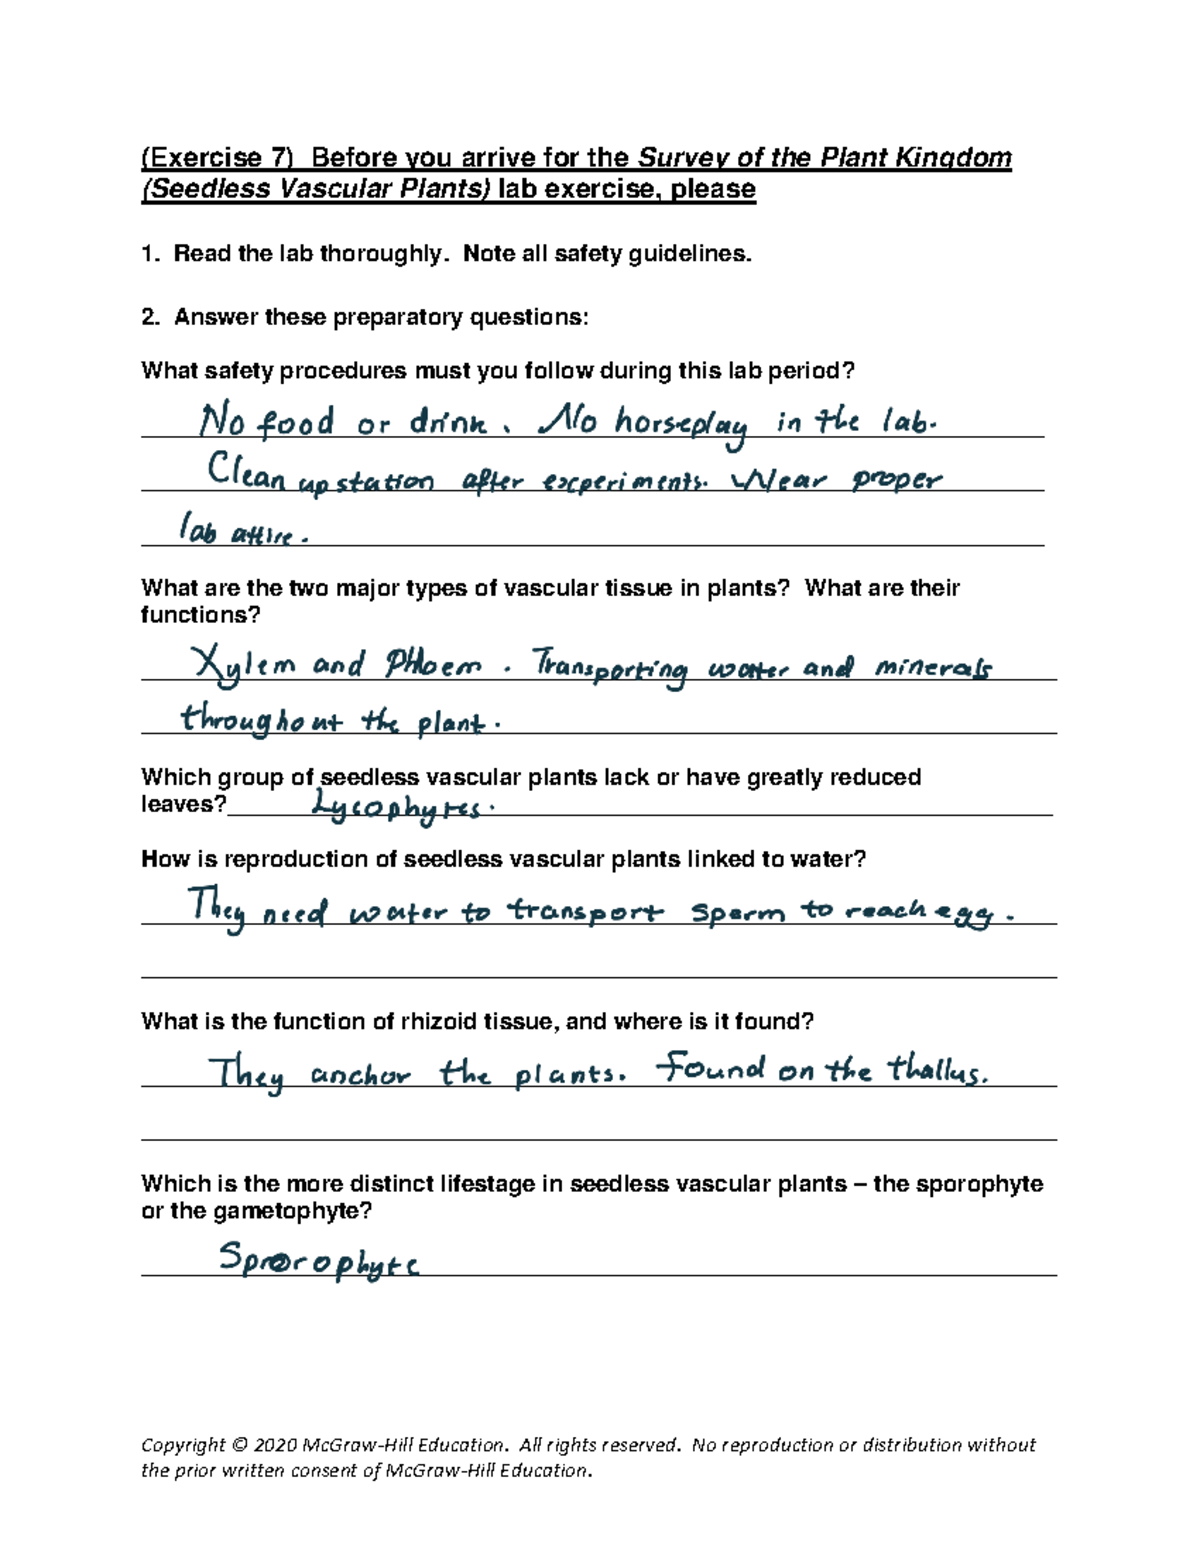 (Exercise 7)  Before you arrive for the Survey of the Plant Kingdom
(Seedless Vascular Plants) lab exercise, please
1.  Read the lab thoroughly.  Note all safety guidelines.
2.  Answer these preparatory questions:
What safety procedures must you follow during this lab period?
No food or drink. No horseplay in the lab.
Clean up station after experiments. Wear proper
lab attire.
What are the two major types of vascular tissue in plants?  What are their
functions?
Xylem and Phloem. Transporting water and minerals
throughout the plant.
Which group of seedless vascular plants lack or have greatly reduced
leaves? Lycophytes.
How is reproduction of seedless vascular plants linked to water?
They need water to transport sperm to reach egg.
What is the function of rhizoid tissue, and where is it found?
They anchor the plants. Found on the thallus.
Which is the more distinct lifestage in seedless vascular plants – the sporophyte
or the gametophyte?
Sporophyte
Copyright © 2020 McGraw-Hill Education.  All rights reserved.  No reproduction or distribution without
the prior written consent of McGraw-Hill Education.